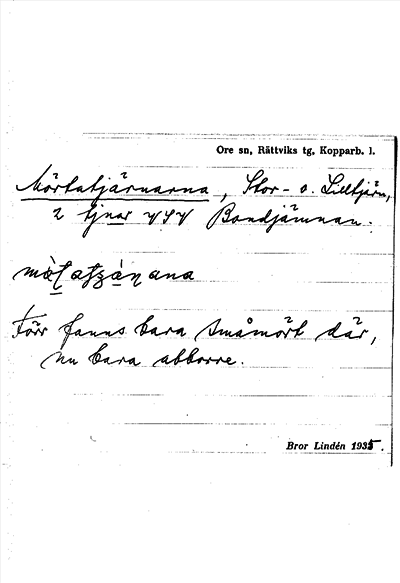 Ore sn, Rättviks tg, Kopparb. l.
Mörtatjärnarna, Stor- o. Lilltjärn,
2 tjnar VSV Bondjämnan.
Förr fanns bara småmört där,
nu bara abborre.
Bror Lindén 1935.